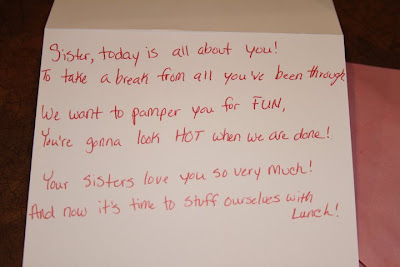 Sister, today is all about you!
To take a break from all you've been through
We want to pamper you for FUN,
You're gonna look HOT when we are done!
Your sisters love you so very much!
And now it's time to stuff ourselves with
Lunch!